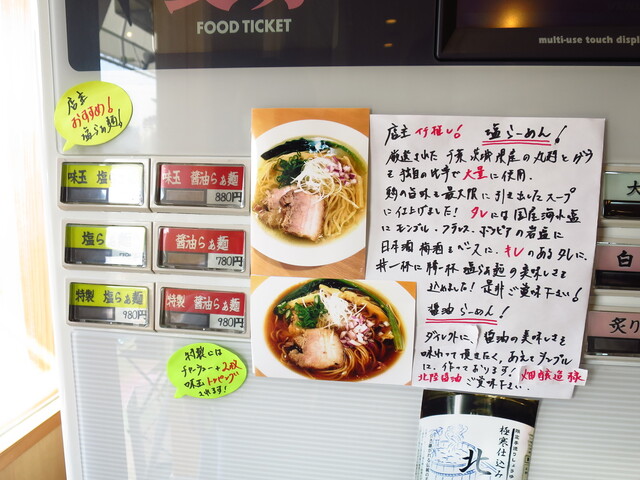 FOOD TICKET
multi-use touch displ
店主
おすすめ!
塩らぁ麺!
味玉 塩ら
味玉 醤油らぁ麺
880円
塩ら
醤油らぁ麺
780円
特製 塩らぁ麺
980円
特製 醤油らぁ麺
980円
特製には
チャーシュー+2枚
味玉トッピング
されます!
店主 イチ推し! 塩らーめん!
厳選された 千葉 茨城県産の丸鶏とガラ
を独自の比率で大量に使用。
鶏の旨味を最大限に引き出したスープ
に仕上げました! タレには国産海水塩
にモンゴル、フランス、ボリビアの岩塩に
日本酒 梅酒をベースに、キレのあるタレに、
丼一杯に勝一杯 塩らぁ麺の美味しさを
込めました! 是非ご賞味下さい!
醤油らーめん!
ダイレクトに、醤油の美味しさを
味わって頂きたく、あえてシンプル
に、作っております! 畑醸造様
北陸醤油 ご賞味下さい。
大
白
炙り
極寒仕込み
北